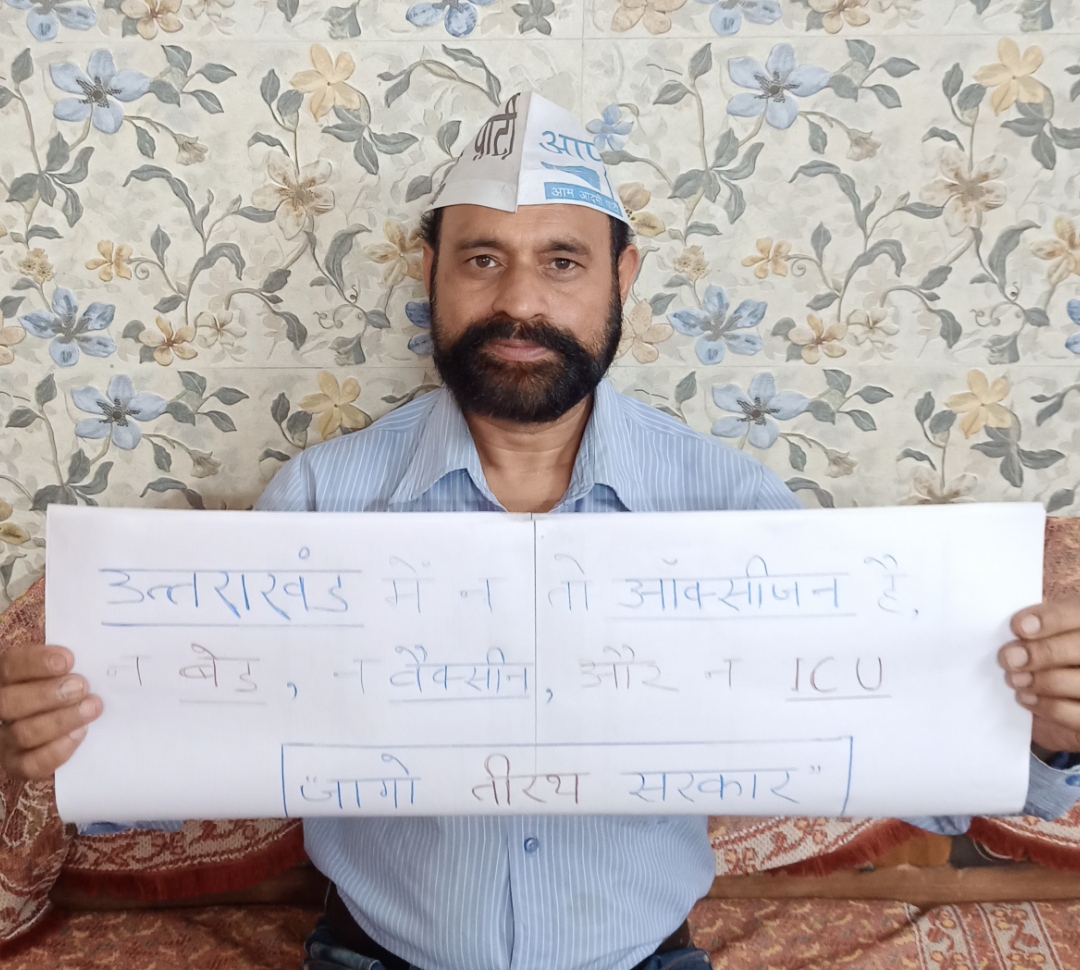 पार्टी
आप
आम आदमी
उत्तराखंड में न तो ऑक्सीजन है,
न बेड, न वैक्सीन, और न ICU
"जागो तीरथ सरकार"